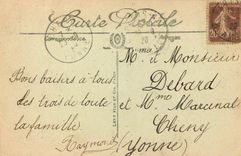 Carte Postale
Correspondance
M. & Monsieur
Debard
et Mme Marcenal
Cheny
(Yonne)
Bons baisers à tous
des trois de toute
la famille
Raymond